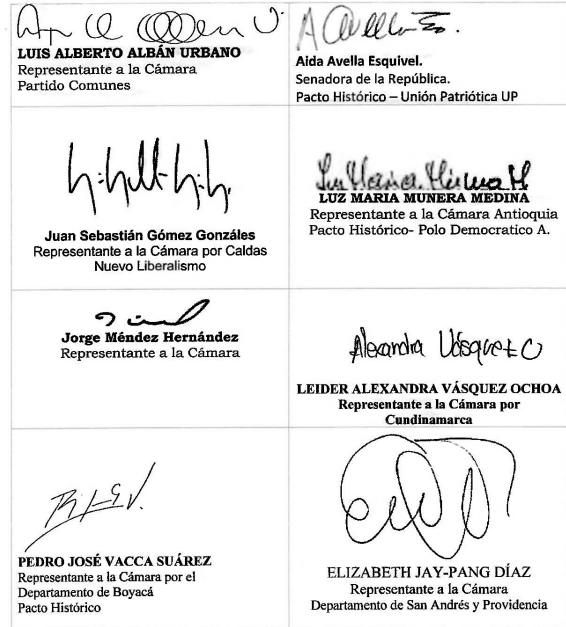 LUIS ALBERTO ALBÁN URBANO
Representante a la Cámara
Partido Comunes
Aida Avella Esquivel.
Senadora de la República.
Pacto Histórico – Unión Patriótica UP
Juan Sebastián Gómez Gonzáles
Representante a la Cámara por Caldas
Nuevo Liberalismo
Luz Maria Munera M
LUZ MARIA MUNERA MEDINA
Representante a la Cámara Antioquia
Pacto Histórico- Polo Democratico A.
Jorge Méndez Hernández
Representante a la Cámara
Alexandra Vásquez O
LEIDER ALEXANDRA VÁSQUEZ OCHOA
Representante a la Cámara por
Cundinamarca
PEDRO JOSÉ VACCA SUÁREZ
Representante a la Cámara por el
Departamento de Boyacá
Pacto Histórico
ELIZABETH JAY-PANG DÍAZ
Representante a la Cámara
Departamento de San Andrés y Providencia